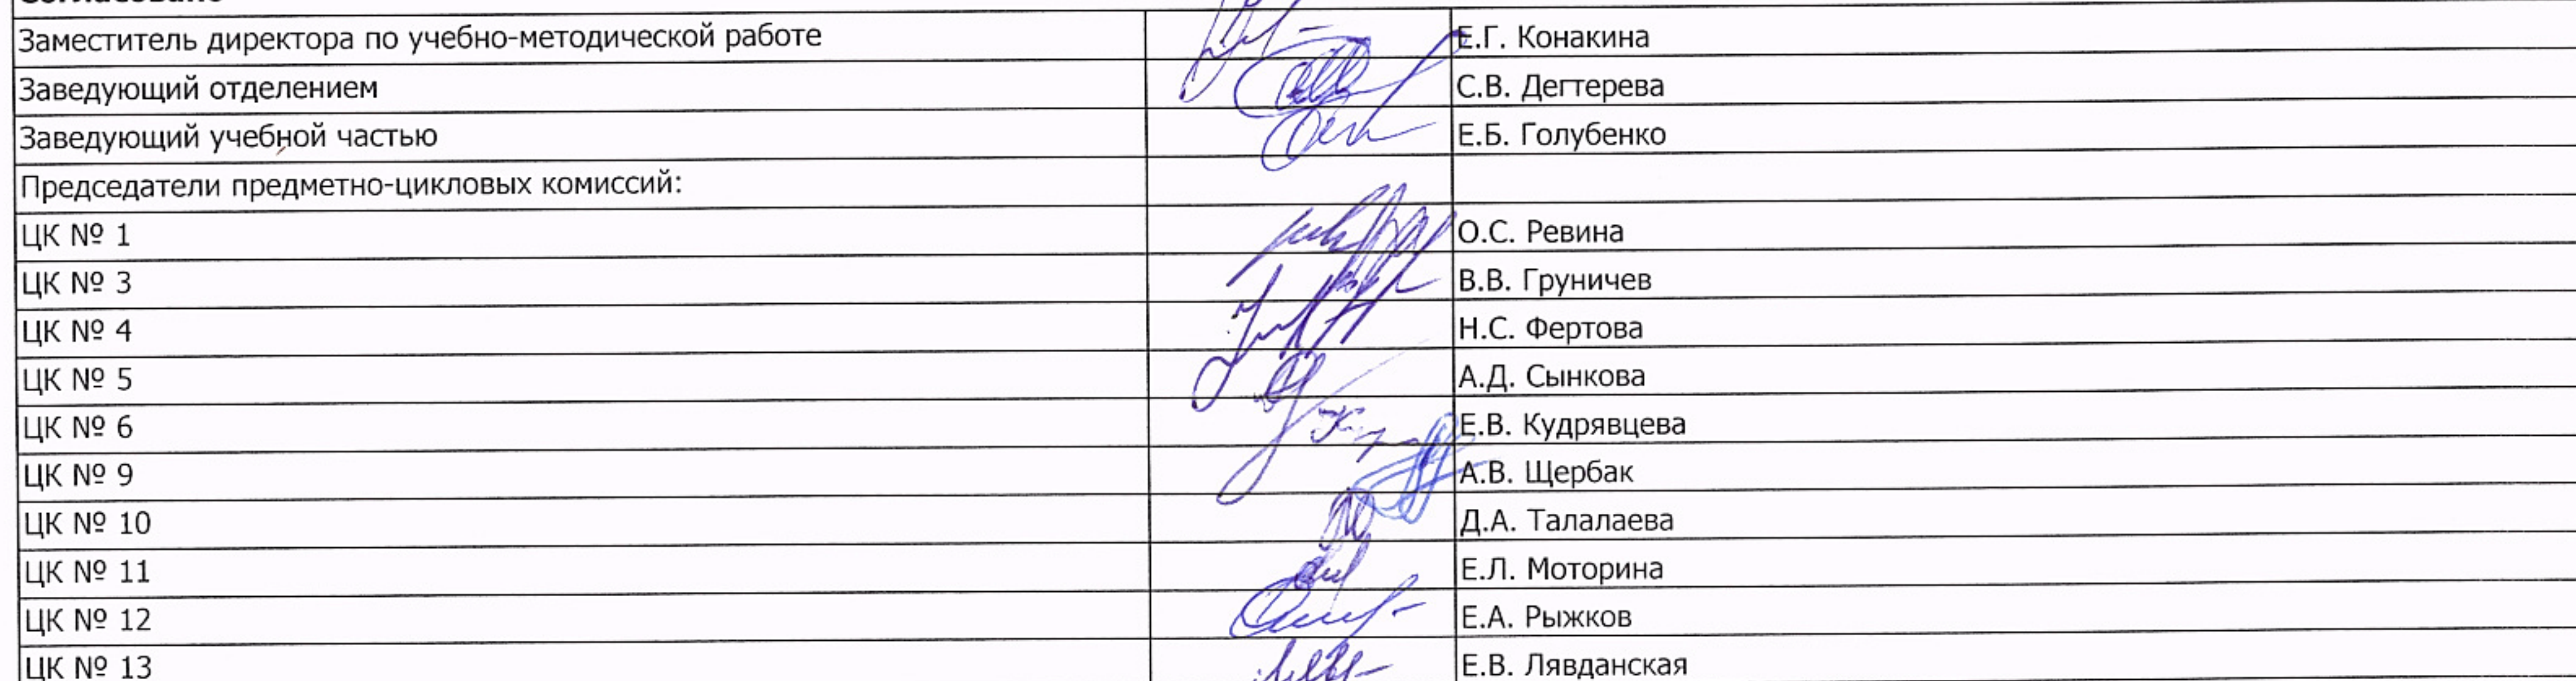 Согласовано
Заместитель директора по учебно-методической работе Е.Г. Конакина
Заведующий отделением С.В. Дегтерева
Заведующий учебной частью Е.Б. Голубенко
Председатели предметно-цикловых комиссий:
ЦК № 1 О.С. Ревина
ЦК № 3 В.В. Груничев
ЦК № 4 Н.С. Фертова
ЦК № 5 А.Д. Сынкова
ЦК № 6 Е.В. Кудрявцева
ЦК № 9 А.В. Щербак
ЦК № 10 Д.А. Талалаева
ЦК № 11 Е.Л. Моторина
ЦК № 12 Е.А. Рыжков
ЦК № 13 Е.В. Лявданская